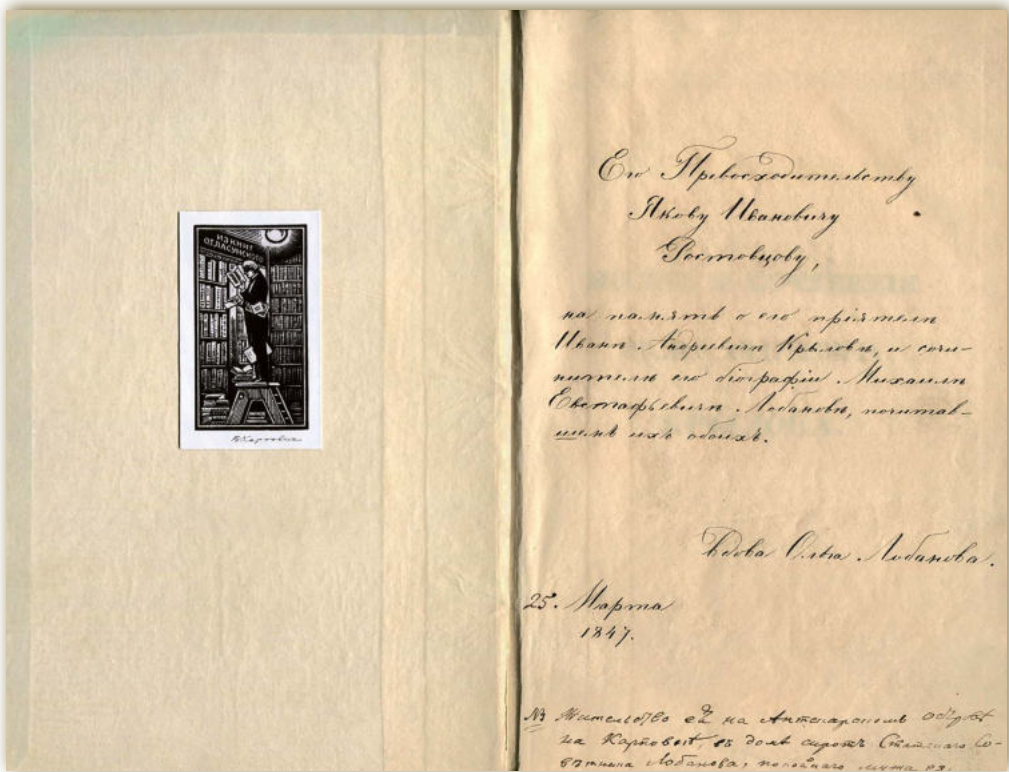 ИЗ КНИГ
О.Г.ЛАСУНСКОГО
Его Превосходительству
Якову Ивановичу
Ростовцову,
на память о его прiятелѣ
Иванѣ Андреевичѣ Крыловѣ, и сочи-
нителѣ его бiографiи Михаилѣ
Евстафьевичѣ Лобановѣ, почитав-
шемъ ихъ обоихъ.
Вдова Ольга Лобанова.
25. Марта
1847.
Жительство ея на Аптекарскомъ
на Карповкѣ, въ домѣ сиротъ Статскаго Со-
вѣтника Лобанова, покойнаго мужа ея.